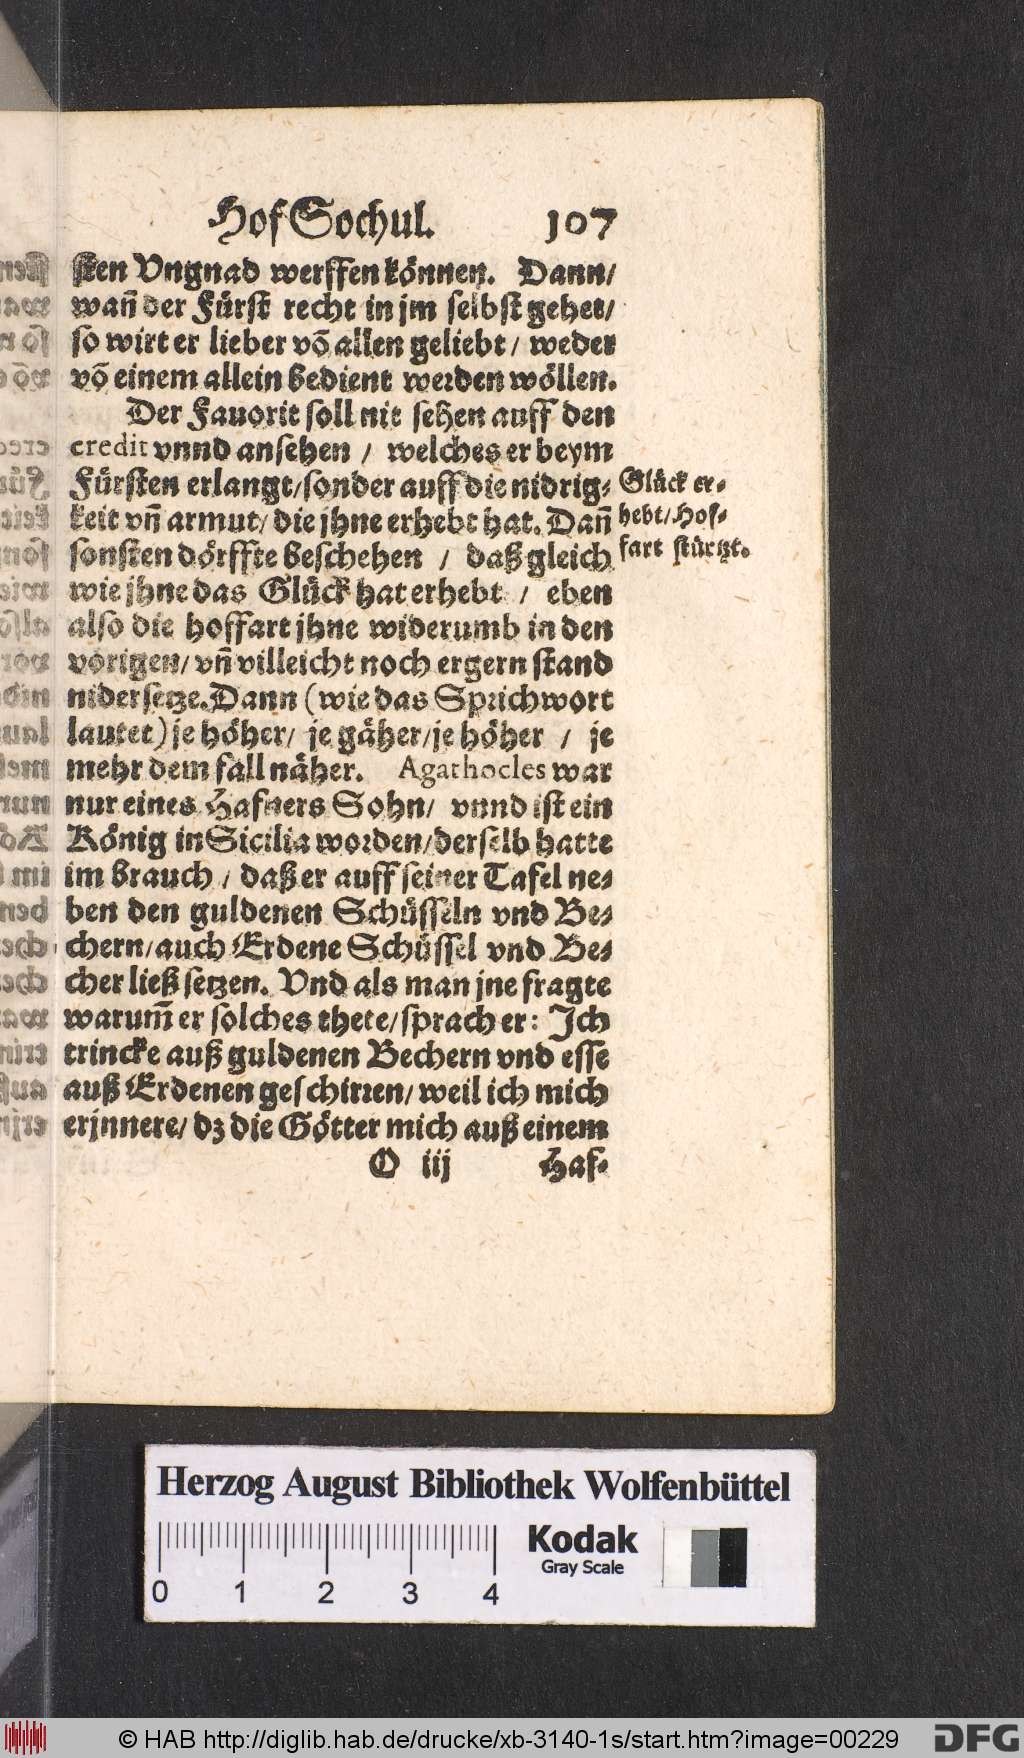 Hof Sochul. 107
sten Vngnad werffen können. Dann/
wañ der Fürst recht in jm selbst gehet/
so wirt er lieber võ allen geliebt / weder
võ einem allein bedient werden wöllen.
Der Fauorit soll nit sehen auff den
credit vnnd ansehen / welches er beym
Fürsten erlangt/sonder auff die nidrig-
keit vñ armut/ die jhne erhebt hat. Dañ
sonsten dörffte beschehen / daß gleich
wie jhne das Glück hat erhebt / eben
also die hoffart jhne widerumb in den
vorigen/ vñ villeicht noch ergern stand
nidersetze. Dann (wie das Sprichwort
lautet) je höher/ je gäher/je höher / je
mehr dem fall näher. Agathocles war
nur eines Hafners Sohn/ vnnd ist ein
König in Sicilia worden/derselb hatte
im brauch / daß er auff seiner Tafel ne-
ben den guldenen Schüsseln vnd Be-
chern/auch Erdene Schüssel vnd Be-
cher ließ setzen. Vnd als man jne fragte
warum̃ er solches thete/sprach er: Ich
trincke auß guldenen Bechern vnd esse
auß Erdenen geschirren/ weil ich mich
erjnnere/ dz die Götter mich auß einem
O iij Haf-
Glück er-
hebt/Hof-
fart stürtzt.
Herzog August Bibliothek Wolfenbüttel
Kodak
Gray Scale
0 1 2 3 4
© HAB http://diglib.hab.de/drucke/xb-3140-1s/start.htm?image=00229
DFG